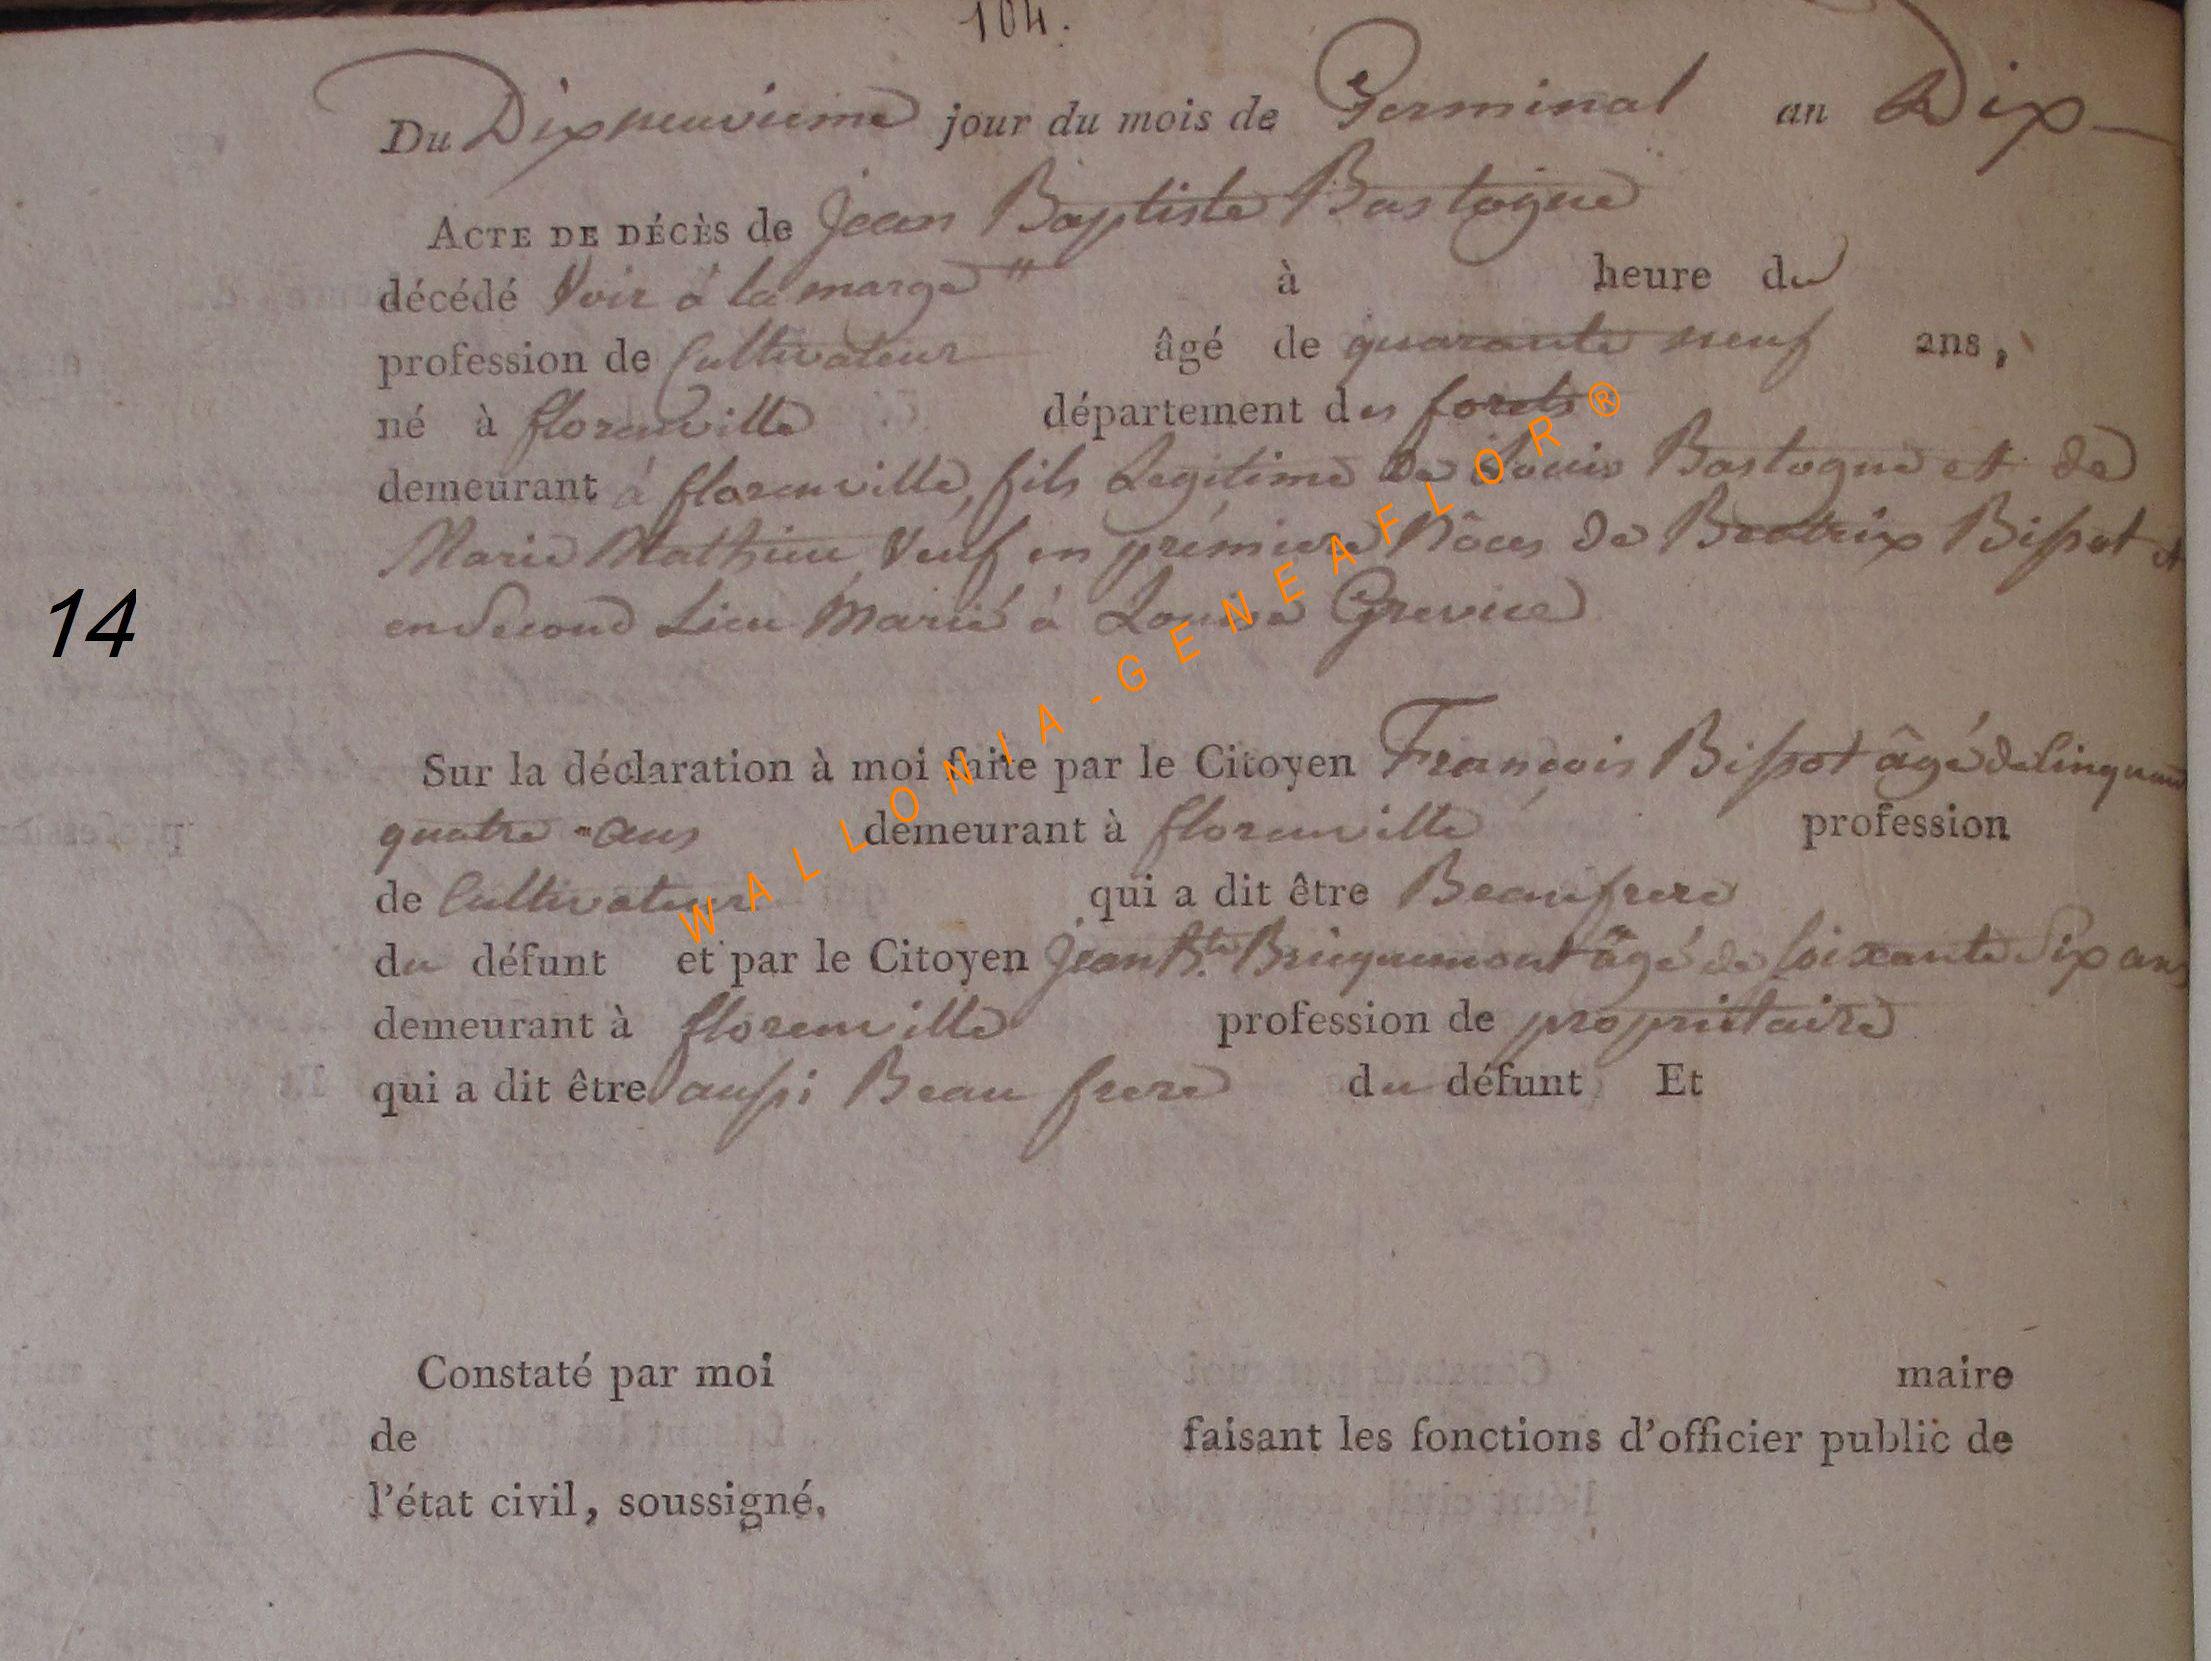 104.
Du Dixneuvieme jour du mois de Germinal an Dix
ACTE DE DÉCÈS de Jean Baptiste Bastogne
décédé Voir à la marge " à heure du
profession de Cultivateur âgé de quarante neuf ans,
né à florenville département des forets
demeurant à florenville, fils Legitime De Louis Bastogne et de
Marie Mathieu, Veuf en prémiere Nôces de Beatrix Bissot et
en Second Lieu Marié à Louise Grevice
14
Sur la déclaration à moi faite par le Citoyen François Bissot âgé de Cinquante
quatre ans demeurant à florenville profession
de Cultivateur qui a dit être Beaufrere
du défunt et par le Citoyen Jean Bte. âgé de soixante Six ans
demeurant à florenville profession de propriétaire
qui a dit être aussi Beau frere du défunt Et
Constaté par moi maire
de faisant les fonctions d'officier public de
l'état civil, soussigné.
WALLONIA-GENEAFLOR®